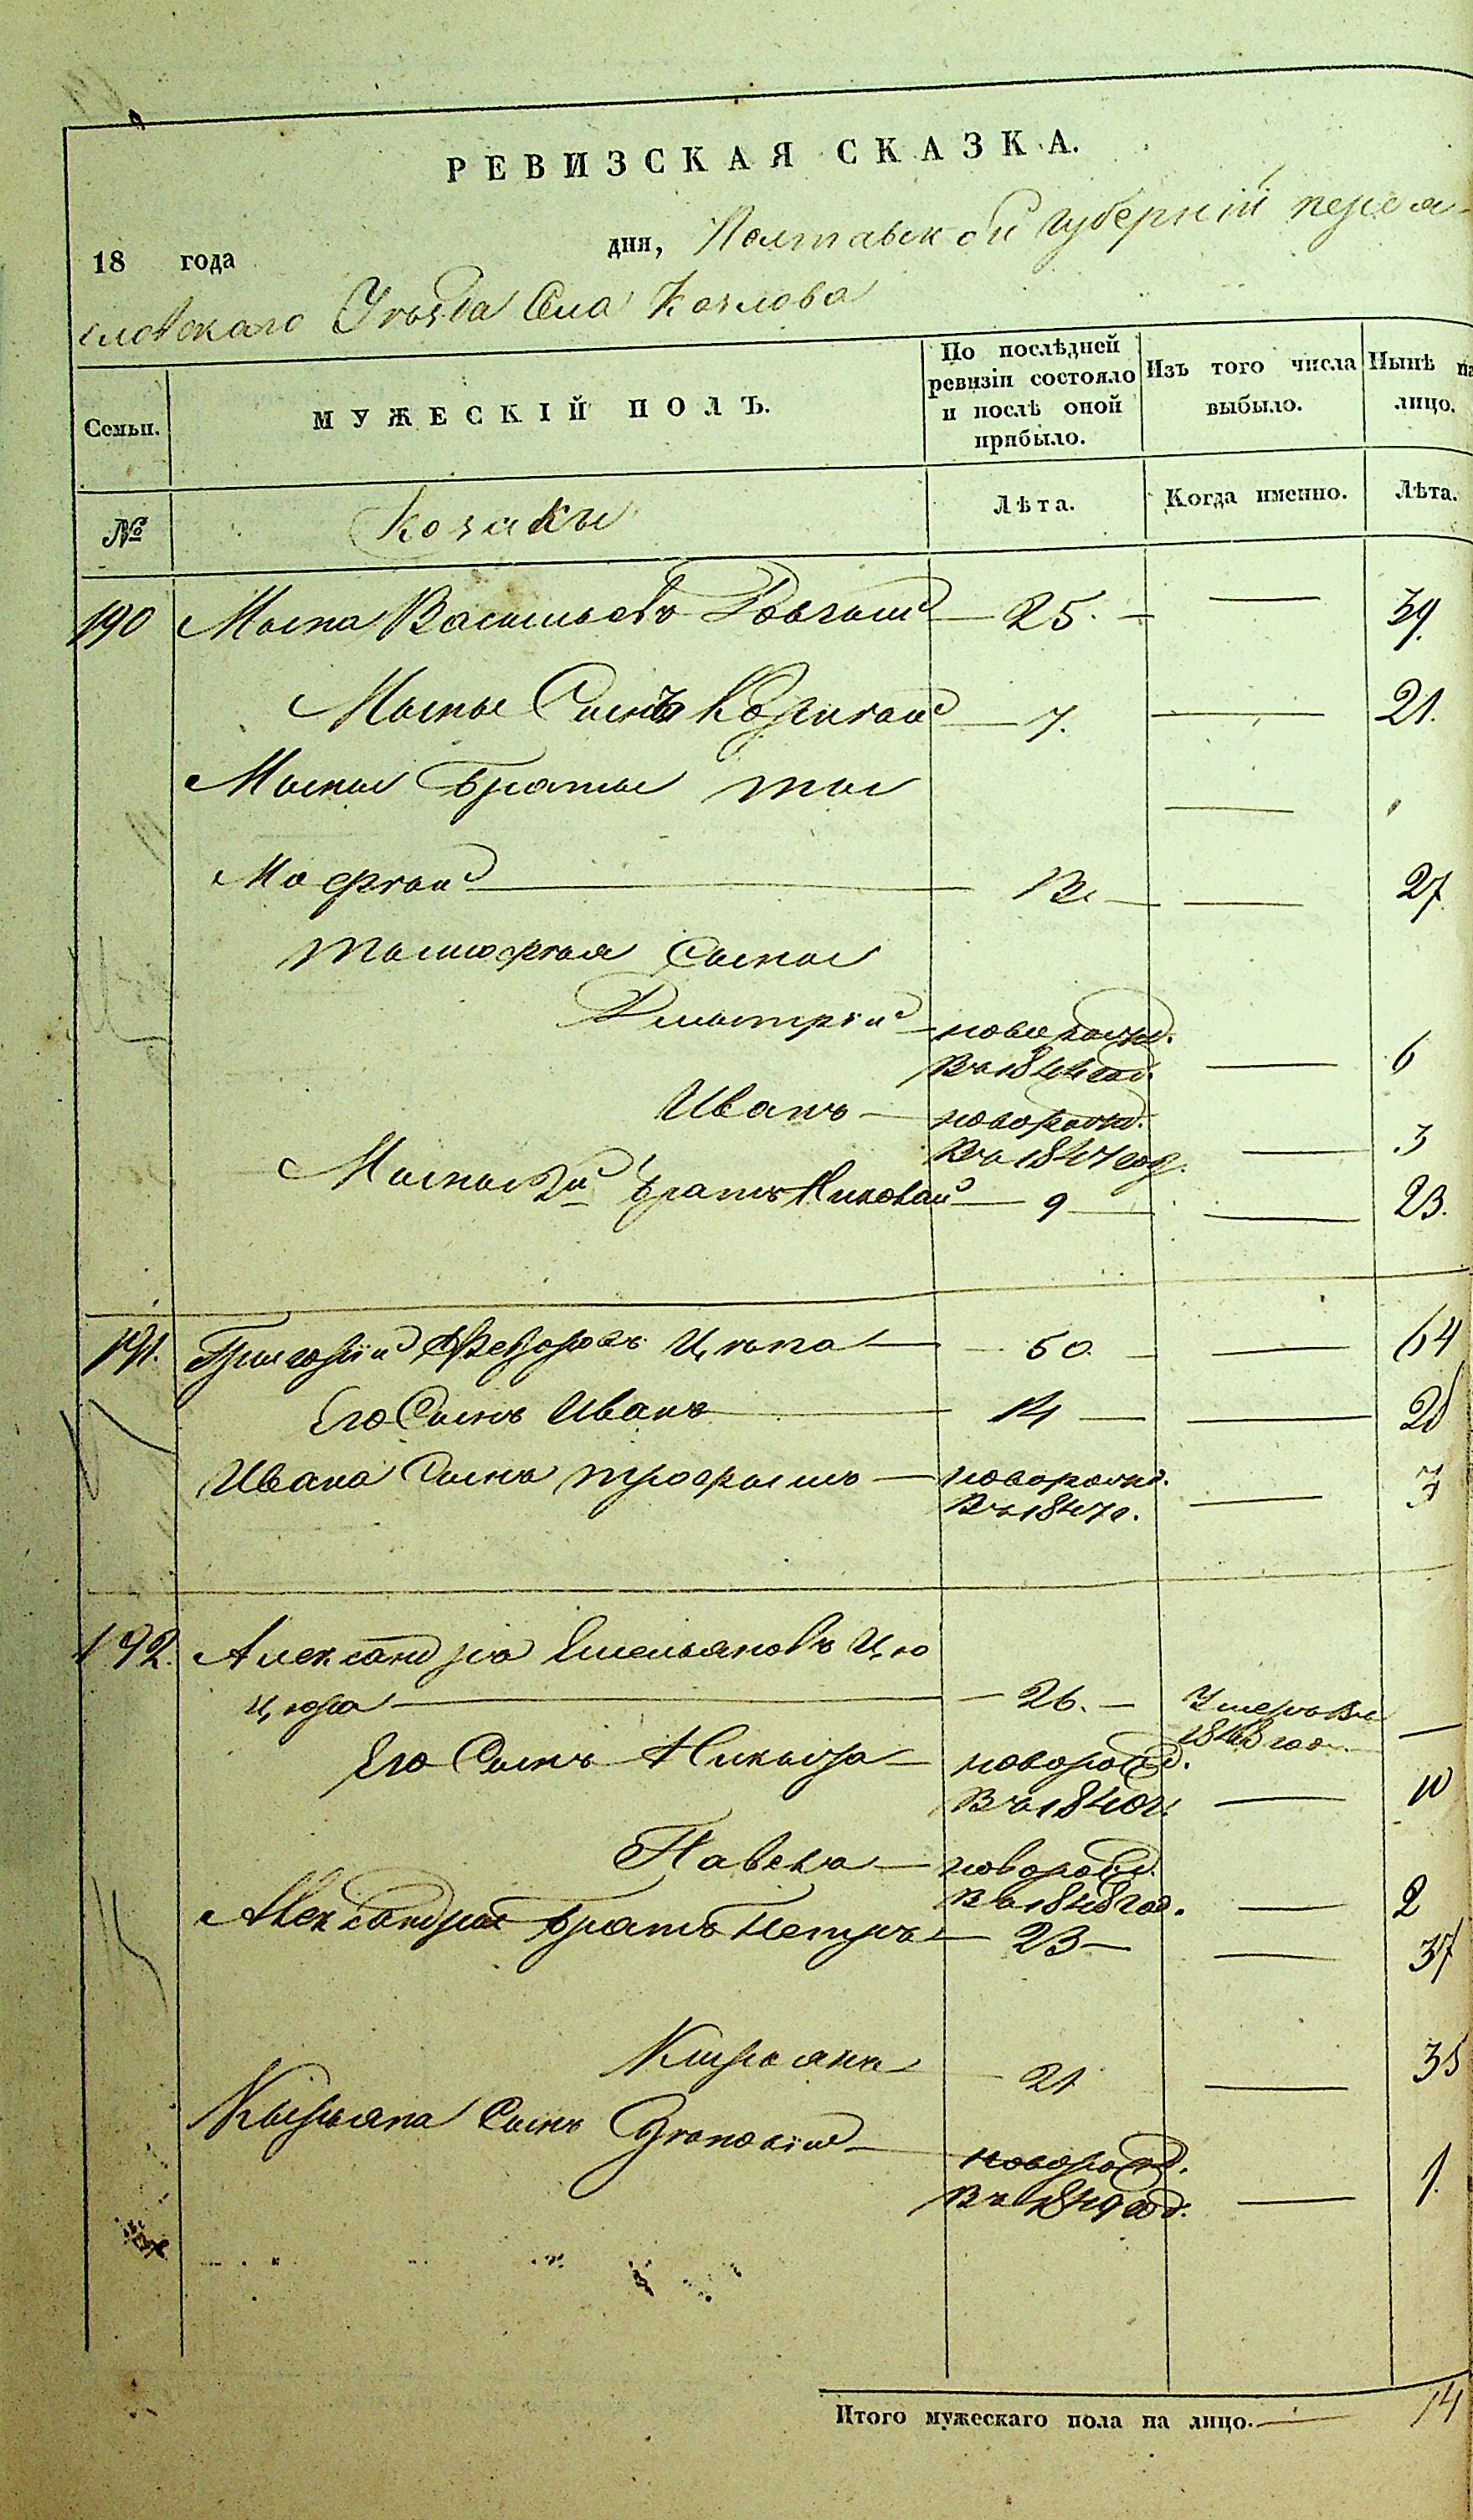 РЕВИЗСКАЯ СКАЗКА.
18 года дня, Полтавской Губерніи перея-
славскаго Уѣзда Села Козлова
Семьи. МУЖЕСКІЙ ПОЛЪ. По послѣдней ревизіи состояло и послѣ оной прибыло. Изъ того числа выбыло. Нынѣ на лицо.
№ Козаки Лѣта. Когда именно. Лѣта.
190 Васильевъ 25. — 39.
Сынъ 7. — 21.
Братья —
13 — 27
Сыны
Дмытрій новорожд. въ 1844 год. — 6
Иванъ новорожд. въ 1847 год. — 3
братъ Николай 9 — 23.
191. Григорій Федоровъ Цѣпа 50 — 64
Его Сынъ Иванъ 14 — 28
Ивана Сынъ трофымъ новорожд. въ 1847 г. — 3
192. Александръ Емельяновъ Цю
цюра 26. — Умеръ въ 1848 год —
Его Сынъ Никыфоръ новорожд. въ 1840 г. — 10
Павелъ новорожд. въ 1848 год. — 2
Александра братъ Петръ 23 — 37
Кирьянъ 21 — 35
Кырьяна Сынъ новорожд. въ 1849 год. — 1.
Итого мужескаго пола на лицо. — 14